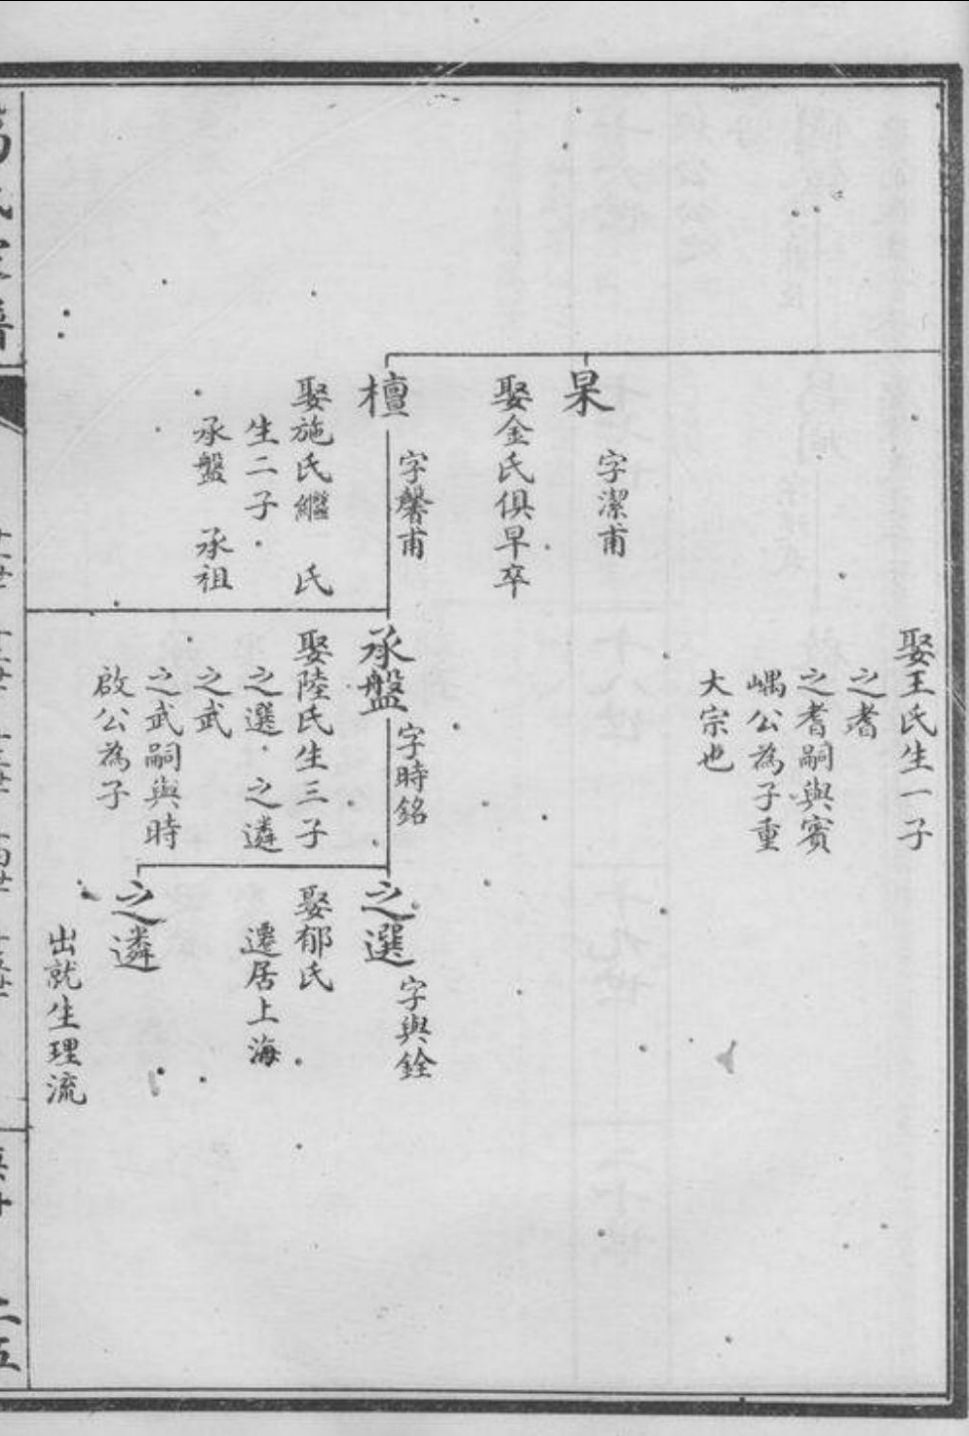 娶王氏生一子
之耆
之耆嗣與賓
嵎公為子重
大宗也
杲
字潔甫
娶金氏俱早卒
檀
字馨甫
娶施氏繼 氏
生二子
承盤 承祖
承盤
字時銘
娶陸氏生三子
之選 之遴
之武
之武嗣與時
啟公為子
之選
字與銓
娶郁氏
遷居上海
之遴
出就生理流